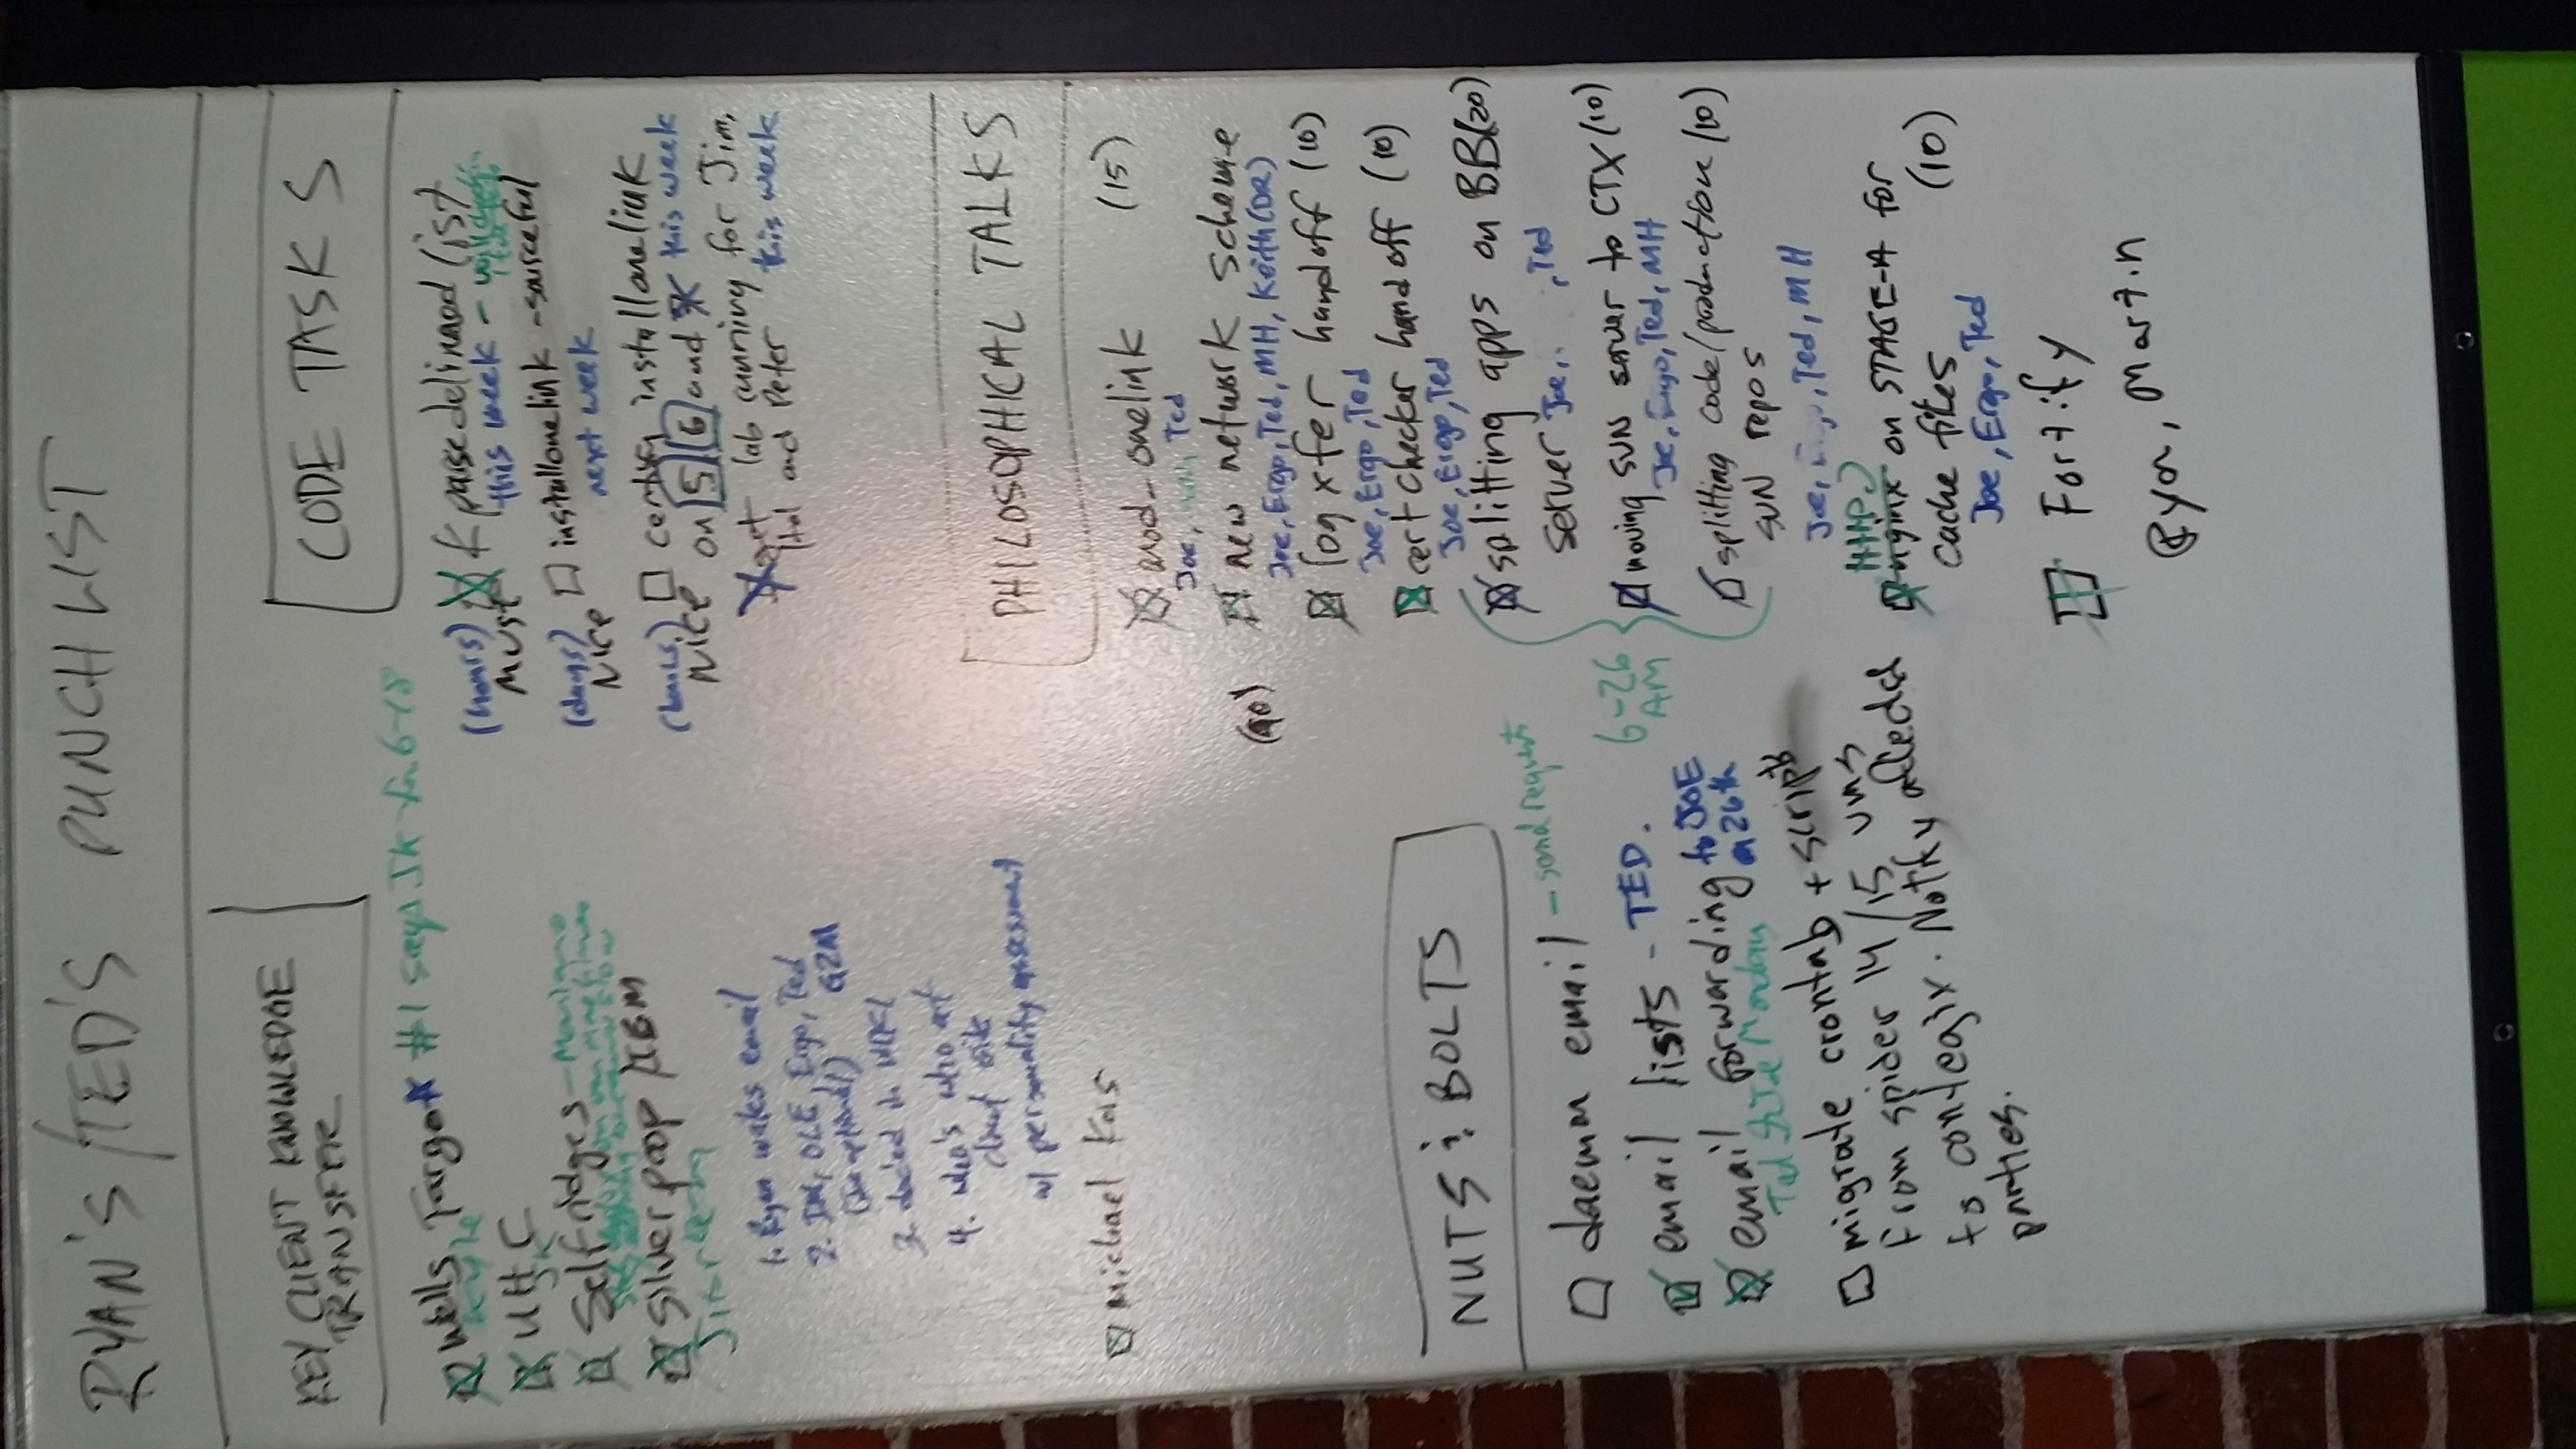 RYAN'S/TED'S PUNCH LIST
KEY CLIENT KNOWLEDGE
TRANSFER
#1 says JK
Wells Target
UHC
Selfridges
Silverpop
1. Ryan writes email
2. Joe, Ergo, Ted
3. docted in WIKI
4. who's who at
client side
w/ personality assessment
Michael Kors
NUTS & BOLTS
daemon email - send request
email lists - TED.
email forwarding to JOE
26th
Ted Monday
migrate crontab + scripts
from spider 14/15 vms
to contegix. Notify affected
parties.
CODE TASKS
(hours)
Must
this week
(days)
Nice
installonelink
next week
(hours)
Nice
installonelink
on 5 6 and this week
lab running for Jim,
and Peter this week
PHILOSOPHICAL TALKS
mod-onelink (15)
Joe, Ted
(90)
new network scheme
Joe, Ergo, Ted, MH, Keith (DR)
log xfer handoff (10)
Joe, Ergo, Ted
cert checker hand off (10)
Joe, Ergo, Ted
splitting apps on BB (20)
server Joe, Ted
6-26
AM
moving SVN server to CTX (10)
Joe, Ergo, Ted, MH
splitting code/production (10)
SVN repos
Joe, Ted, MH
HTTP
nginx on STAGE-A for
cache files (10)
Joe, Ergo, Ted
Fortify
Ryan, Martin